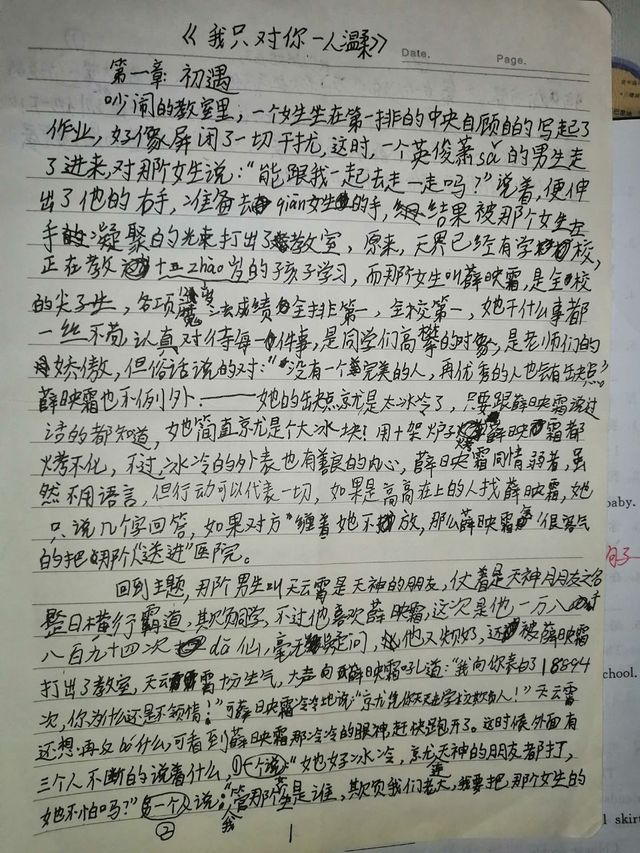 《我只对你一人温柔》
Date.
Page.
第一章：初遇
吵闹的教室里，一个女生坐在第一排的中央自顾自的写起了
作业，好像屏闭了一切干扰，这时，一个英俊萧sǎ的男生走
了进来，对那个女生说："能跟我一起去走一走吗？"说着，便伸
出了他的右手，准备去qiān女生的手，结果被那个女生在
手凝聚的光束打出了教室，原来，天界已经有学校，
正在教十二zhào岁的孩子学习，而那个女生叫薛映霜，是全校
的尖子生，各项魔法成绩全排第一，全校第一，她干什么事都
一丝不苟认真对待每一件事，是同学们高攀的对象，是老师们的
娇傲，但俗话说的对："没有一个完美的人，再优秀的人也会有缺点"
薛映霜也不例外．——她的缺点就是太冰冷了，只要跟薛映霜说过
话的都知道，她简直就是个大冰块！用十架炉子烤薛映霜都
烤不化，不过冰冷的外表也有善良的内心，薛映霜同情弱者，虽
然不用语言，但行动可以代表一切，如果是高高在上的人找薛映霜，她
只说几个字回答，如果对方缠着她不放，那么薛映霜很客气
的把那个人"送进"医院。
回到主题，那个男生叫天云霄是天神的朋友，仗着是天神朋友之名
整日横行霸道，欺负同学，不过他喜欢薛映霜，这次是他一万八千
八百九十四次dā仙，毫无疑问，他又烦好，还被薛映霜
打出了教室，天云霄十分生气，大声向薛映霜吼道："我向你表白了18894
次，你为什么还是不领情！"可薛映霜冷冷地说："就凭你天天在学校欺负人！"天云霄
还想再说什么，可看到薛映霜那冷冷的眼神，赶快跑开了。这时候外面有
三个人不断的说着什么，①一个说："她也好冰冷，就天神的朋友都打，
她不怕吗？"另一个人说："管那个是谁，欺负我们老大，我要把那个女生的
②
我
1
baby.
句子
chool.
l skirt